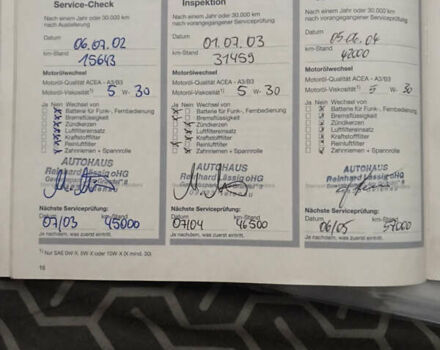 Service-Check
Nach einem Jahr oder 30.000 km
nach Auslieferung
Datum
06.07.02
km-Stand
15643
Motorölwechsel
Motoröl-Qualität ACEA - A3/B3
Motoröl-Viskosität¹⁾ 5 W- 30
Ja Nein Wechsel von
Batterie für Funk-, Fernbedienung
Bremsflüssigkeit
Zündkerzen
Luftfiltereinsatz
Kraftstofffilter
Reinluftfilter
Zahnriemen + Spannrolle
AUTOHAUS
Reinhard Lässig oHG
Nächste Serviceprüfung:
Datum km-Stand
07/03 45000
Je nachdem, was zuerst eintritt.
¹⁾ Nur SAE 0W-X, 5W-X oder 10W-X (X mind. 30)
16
Inspektion
Nach einem Jahr oder 30.000 km
nach vorangegangener Serviceprüfung
Datum
01.07.03
km-Stand
31459
Motorölwechsel
Motoröl-Qualität ACEA - A3/B3
Motoröl-Viskosität¹⁾ 5 W- 30
Ja Nein Wechsel von
Batterie für Funk-, Fernbedienung
Bremsflüssigkeit
Zündkerzen
Luftfiltereinsatz
Kraftstofffilter
Reinluftfilter
Zahnriemen + Spannrolle
AUTOHAUS
Reinhard Lässig oHG
Nächste Serviceprüfung:
Datum km-Stand
07/04 46500
Je nachdem, was zuerst eintritt.
Nach einem Jahr oder 30.000 km
nach vorangegangener Serviceprüfung
Datum
05.06.04
km-Stand
42000
Motorölwechsel
Motoröl-Qualität ACEA - A3/B3
Motoröl-Viskosität¹⁾ 5 W- 30
Ja Nein Wechsel von
Batterie für Funk-, Fernbedienung
Bremsflüssigkeit
Zündkerzen
Luftfiltereinsatz
Kraftstofffilter
Reinluftfilter
Zahnriemen + Spannrolle
AUTOHAUS
Reinhard Lässig oHG
Nächste Serviceprüfung:
Datum km-Stand
06/05 57000
Je nachdem, was zuerst eintritt.